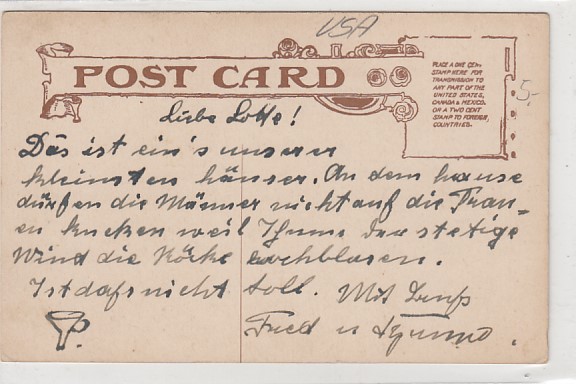 USA
POST CARD
PLACE A ONE CENT
STAMP HERE FOR
TRANSMISSION TO
ANY PART OF THE
UNITED STATES,
CANADA & MEXICO.
OR A TWO CENT
STAMP TO FOREIGN
COUNTRIES.
5.-
Liebe Lotte!
Das ist ein's unserer
kleinsten häuser. An dem hause
dürfen die Männer nicht auf die Frau-
en kucken weil der stetige
Wind die Röcke hochblasen.
Ist dass nicht toll. Mit
Fred u